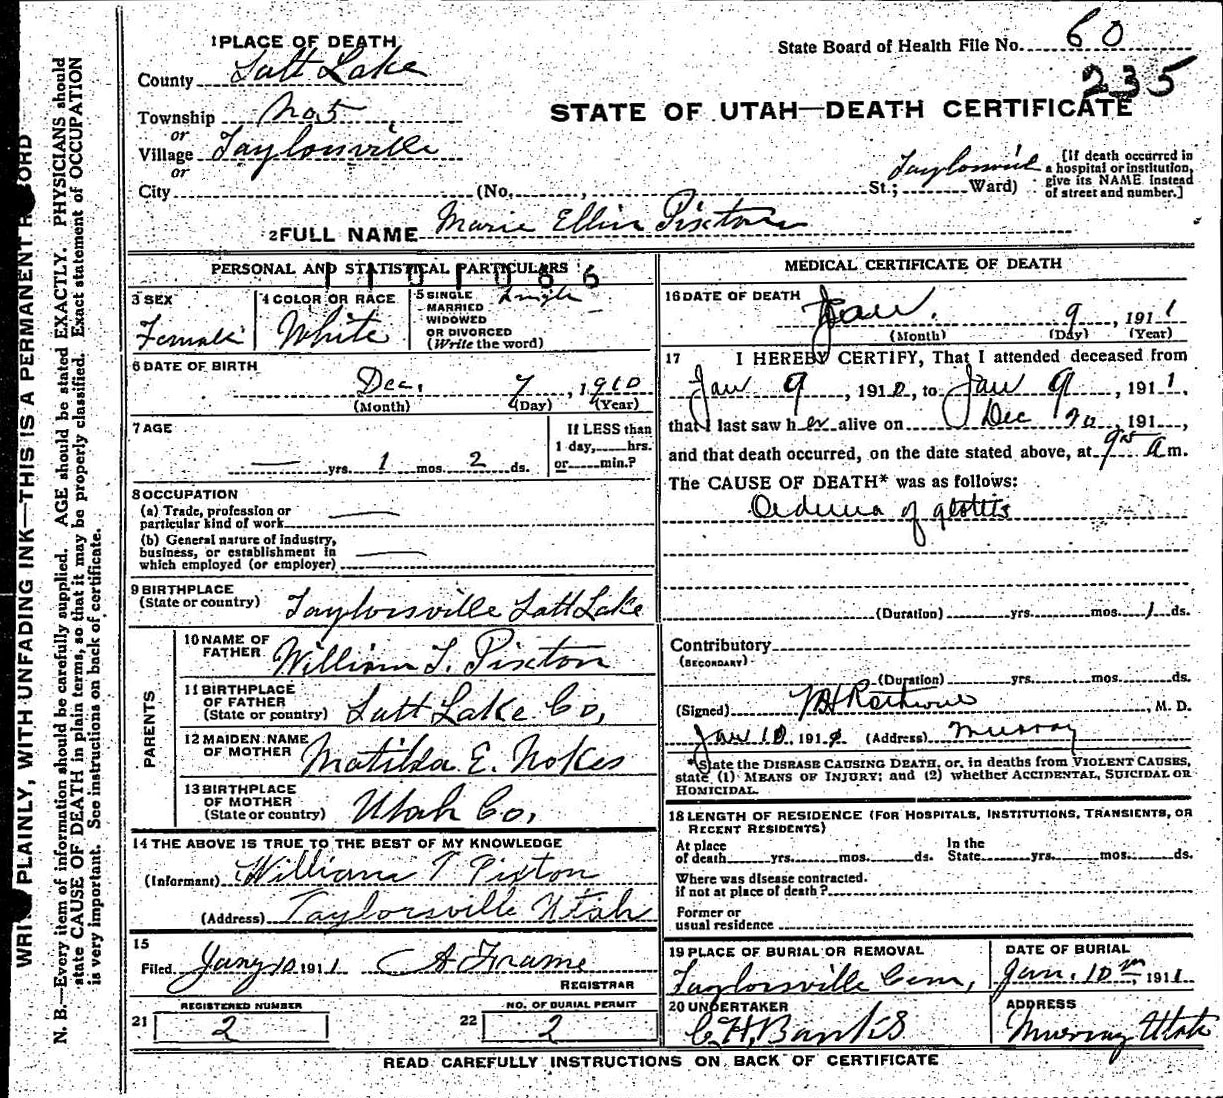 1 PLACE OF DEATH
County Salt Lake
Township No 5
or
Village Taylorsville
or
City (No. , St.; Taylorsville Ward)
[If death occurred in a hospital or institution, give its NAME instead of street and number.]
State Board of Health File No. 60
235
STATE OF UTAH—DEATH CERTIFICATE
2 FULL NAME Marie Ellin Pixton
PERSONAL AND STATISTICAL PARTICULARS
1101086
3 SEX
Female
4 COLOR OR RACE
White
5 SINGLE
MARRIED
WIDOWED
OR DIVORCED
(Write the word)
Single
6 DATE OF BIRTH
Dec. 7, 1910
(Month) (Day) (Year)
7 AGE
— yrs. 1 mos. 2 ds.
If LESS than
1 day, hrs.
or min.?
8 OCCUPATION
(a) Trade, profession or
particular kind of work —
(b) General nature of industry,
business, or establishment in
which employed (or employer) —
9 BIRTHPLACE
(State or country) Taylorsville Salt Lake
PARENTS
10 NAME OF
FATHER William T. Pixton
11 BIRTHPLACE
OF FATHER
(State or country) Salt Lake Co,
12 MAIDEN NAME
OF MOTHER Matilda E. Nokes
13 BIRTHPLACE
OF MOTHER
(State or country) Utah Co,
14 THE ABOVE IS TRUE TO THE BEST OF MY KNOWLEDGE
(Informant) William T Pixton
(Address) Taylorsville Utah
15
Filed Jany 10 1911 A Frame
REGISTRAR
REGISTERED NUMBER
21 2
NO. OF BURIAL PERMIT
22 2
MEDICAL CERTIFICATE OF DEATH
16 DATE OF DEATH
Jan. 9, 1911
(Month) (Day) (Year)
17 I HEREBY CERTIFY, That I attended deceased from
Jan 9, 1910, to Jan 9, 1911,
that I last saw her alive on Dec 20, 191 ,
and that death occurred, on the date stated above, at 9 a m.
The CAUSE OF DEATH* was as follows:
Oedema of glottis
(Duration) yrs. mos. 1 ds.
Contributory
(SECONDARY)
(Duration) yrs. mos. ds.
(Signed) , M. D.
Jan 10, 191 (Address) Murray
*State the DISEASE CAUSING DEATH, or, in deaths from VIOLENT CAUSES,
state (1) MEANS OF INJURY; and (2) whether ACCIDENTAL, SUICIDAL OR
HOMICIDAL.
18 LENGTH OF RESIDENCE (FOR HOSPITALS, INSTITUTIONS, TRANSIENTS, OR
RECENT RESIDENTS)
At place
of death yrs. mos. ds.
In the
State yrs. mos. ds.
Where was disease contracted.
if not at place of death?
Former or
usual residence
19 PLACE OF BURIAL OR REMOVAL
Taylorsville Cem,
DATE OF BURIAL
Jan. 10th, 1911
20 UNDERTAKER
C.H. Banks
ADDRESS
Murray Utah
READ CAREFULLY INSTRUCTIONS ON BACK OF CERTIFICATE
PLAINLY, WITH UNFADING INK—THIS IS A PERMANENT
N. B.—Every item of information should be carefully supplied. AGE should be stated EXACTLY. PHYSICIANS should
state CAUSE OF DEATH in plain terms, so that it may be properly classified. Exact statement of OCCUPATION
is very important. See instructions on back of certificate.